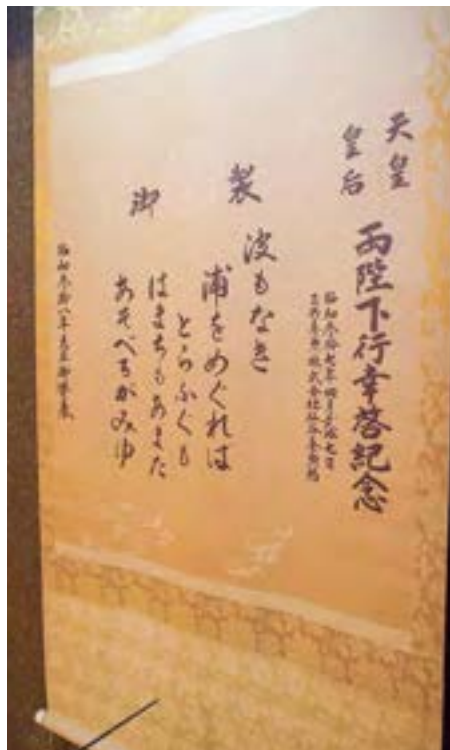 天皇
皇后
両陛下行幸啓紀念
昭和参拾七年四月
株式会社
製
波もなき
浦をめぐれは
とらふくも
御
はまちもあまた
あそべるがみゆ
昭和参拾八年